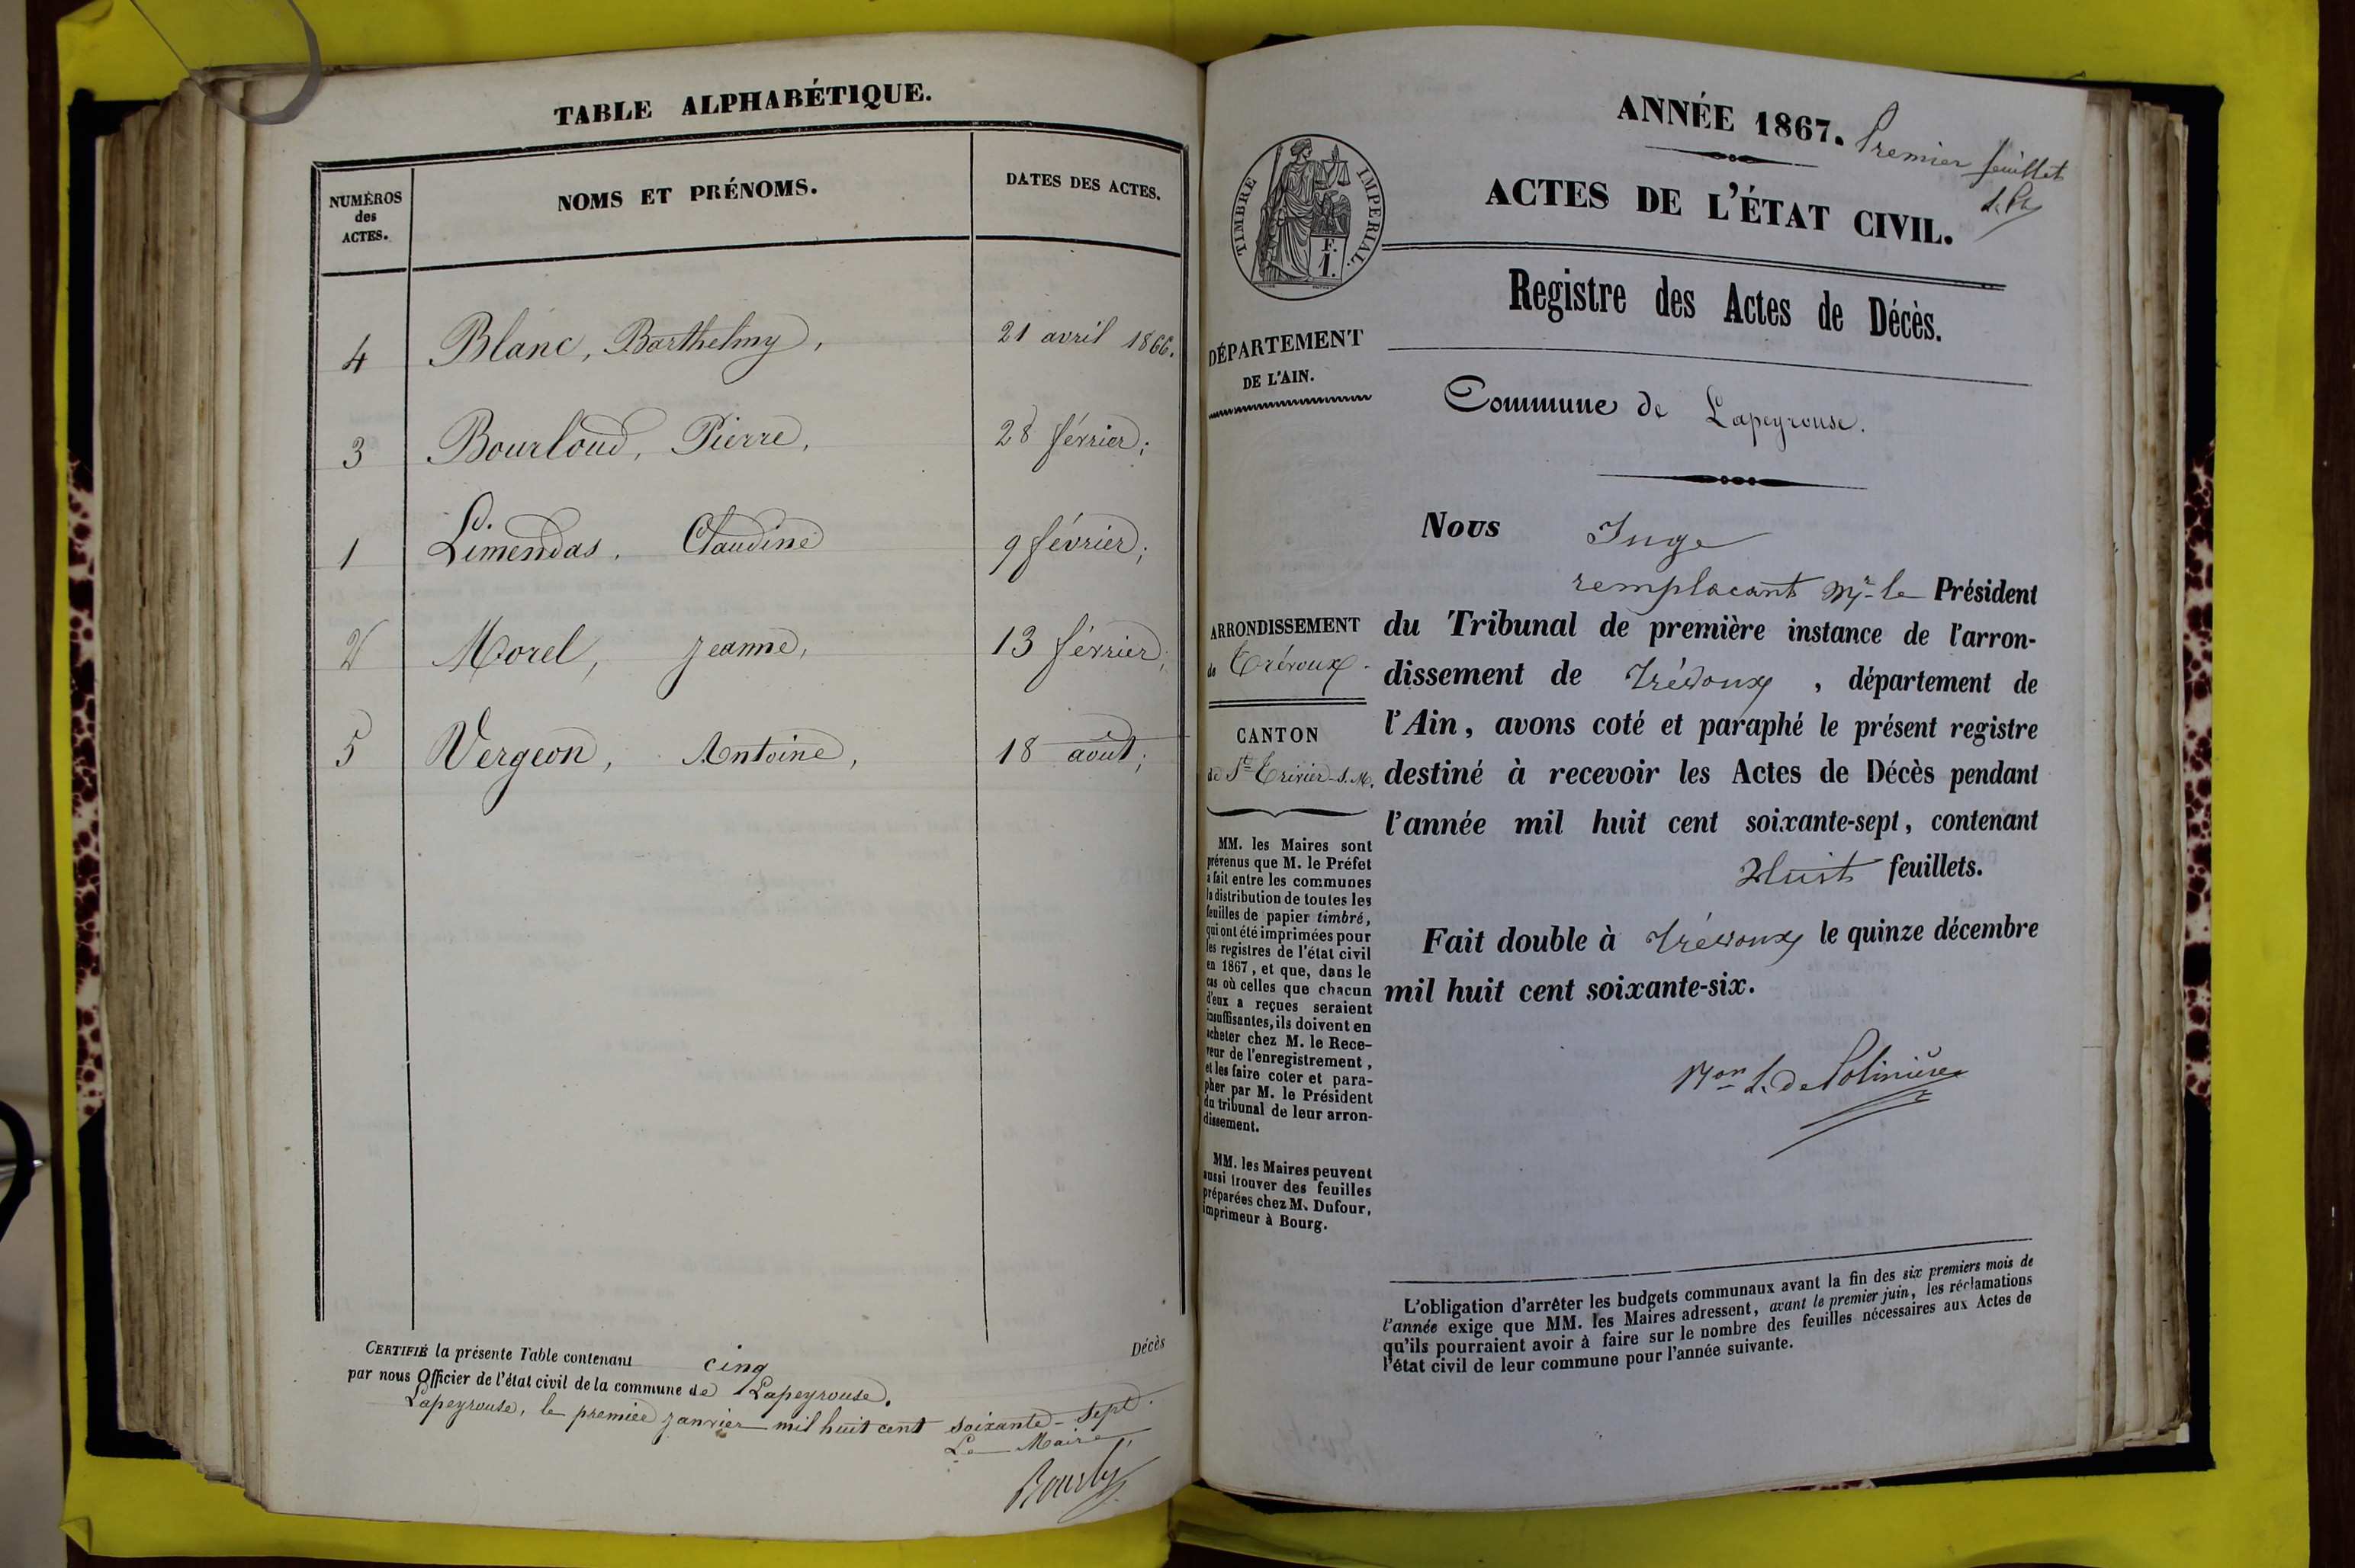 TABLE ALPHABÉTIQUE.
NUMÉROS
des
ACTES.
NOMS ET PRÉNOMS.
DATES DES ACTES.
4 Blanc, Barthelmy, 21 avril 1866.
3 Bourloud, Pierre, 28 février;
1 Limendas, Claudine 9 février;
2 Morel, Jeanne, 13 février;
5 Vergeon, Antoine, 18 août;
CERTIFIÉ la présente Table contenant cinq Décès
par nous Officier de l'état civil de la commune de Lapeyrouse.
Lapeyrouse, le premier janvier mil huit cent soixante-sept.
Le Maire,
ANNÉE 1867.
Premier feuillet
ACTES DE L'ÉTAT CIVIL.
TIMBRE IMPERIAL.
F.
1.
Registre des Actes de Décès.
DÉPARTEMENT
DE L'AIN.
Commune de Lapeyrouse.
Nous Juge
remplacant Mr le Président
du Tribunal de première instance de l'arron-
dissement de Trévoux, département de
l'Ain, avons coté et paraphé le présent registre
destiné à recevoir les Actes de Décès pendant
l'année mil huit cent soixante-sept, contenant
Huit feuillets.
Fait double à Trévoux le quinze décembre
mil huit cent soixante-six.
de Polinière
ARRONDISSEMENT
de Trévoux.
CANTON
de St Trivier-s.M.
MM. les Maires sont
prévenus que M. le Préfet
a fait entre les communes
la distribution de toutes les
feuilles de papier timbré,
qui ont été imprimées pour
les registres de l'état civil
en 1867, et que, dans le
cas où celles que chacun
d'eux a reçues seraient
insuffisantes, ils doivent en
acheter chez M. le Rece-
veur de l'enregistrement,
et les faire coter et para-
pher par M. le Président
du tribunal de leur arron-
dissement.
MM. les Maires peuvent
aussi trouver des feuilles
préparées chez M. Dufour,
imprimeur à Bourg.
L'obligation d'arrêter les budgets communaux avant la fin des six premiers mois de
l'année exige que MM. les Maires adressent, avant le premier juin, les réclamations
qu'ils pourraient avoir à faire sur le nombre des feuilles nécessaires aux Actes de
l'état civil de leur commune pour l'année suivante.